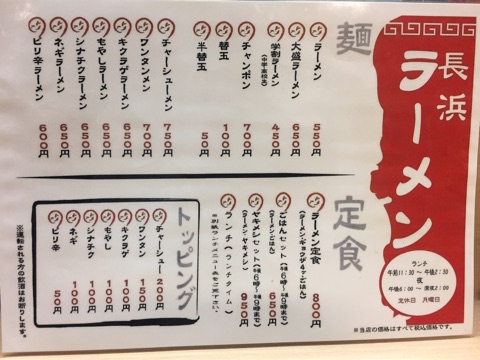 長浜ラーメン
ランチ
午前11:30〜午後2:30
夜
午後6:00〜深夜2:00
定休日 月曜日
※当店の価格はすべて税込価格です。
麺
ラーメン 550円
大盛ラーメン 650円
学割ラーメン 450円
(中学高校生)
チャンポン 700円
替玉 100円
半替玉 50円
チャーシューメン 750円
ワンタンメン 700円
キクラゲラーメン 650円
もやしラーメン 650円
シナチクラーメン 650円
ネギラーメン 650円
ピリ辛ラーメン 600円
定食
ラーメン定食 800円
(ラーメン・ギョウザ4ケ・ごはん)
ごはんセット(夕6時〜夕9時まで) 650円
(ラーメン・ごはん)
ヤキメシセット(夕6時〜夕9時まで) 950円
(ラーメン・ヤキメシ)
ランチ(ランチタイム)
※別紙ランチメニュー表をご覧下さい。
トッピング
チャーシュー 200円
ワンタン 150円
キクラゲ 100円
もやし 100円
シナチク 100円
ネギ 100円
ピリ辛 50円
※運転される方の飲酒はお断りします。